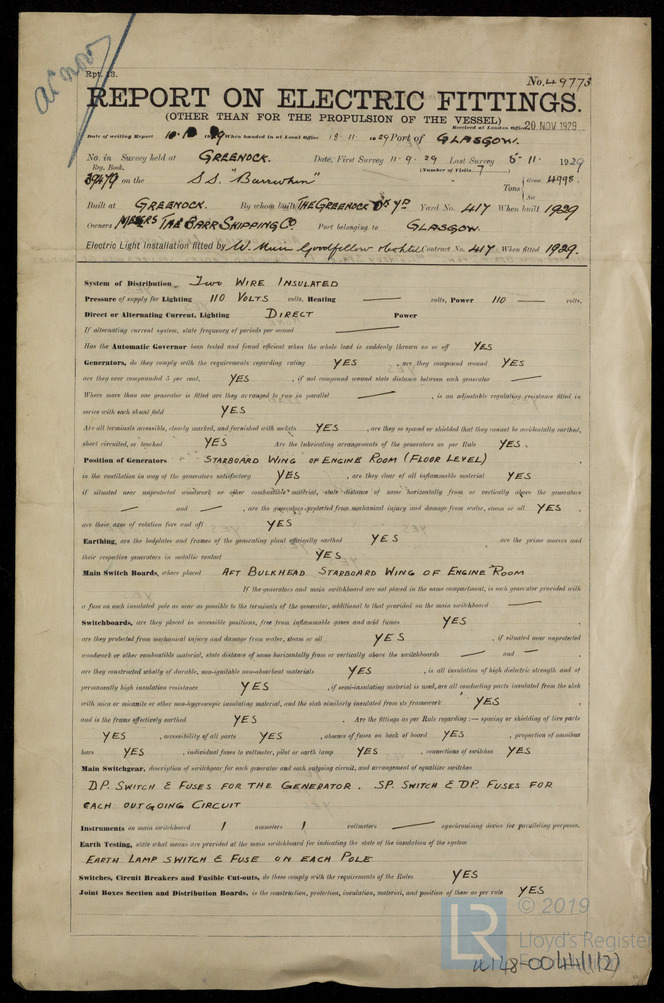 Rpt. 13.
No. 49773
REPORT ON ELECTRIC FITTINGS.
(OTHER THAN FOR THE PROPULSION OF THE VESSEL)
Received at London Office 20 NOV 1929
Date of writing Report 19 When handed in at Local Office 11. 1929 Port of GLASGOW.
No. in Survey held at GREENOCK. Date, First Survey 11. 9. 29 Last Survey 11. 1929
Reg. Book. (Number of Visits 7)
39479 on the S.S. "Barrwhin" Tons { Gross 4998. Net
Built at GREENOCK. By whom built THE GREENOCK DK YD Yard No. 417 When built 1929
Owners THE BARR SHIPPING Co Port belonging to GLASGOW.
Electric Light Installation fitted by W. Muir Goodfellow Contract No. 417 When fitted 1929.
System of Distribution Two WIRE INSULATED
Pressure of supply for Lighting 110 VOLTS volts, Heating — volts, Power 110 — volts.
Direct or Alternating Current, Lighting DIRECT Power
If alternating current system, state frequency of periods per second —
Has the Automatic Governor been tested and found efficient when the whole load is suddenly thrown on or off YES
Generators, do they comply with the requirements regarding rating YES , are they compound wound YES
are they over compounded 5 per cent. YES , if not compound wound state distance between each generator —
Where more than one generator is fitted are they arranged to run in parallel — , is an adjustable regulating resistance fitted in
series with each shunt field YES
Are all terminals accessible, clearly marked, and furnished with sockets YES , are they so spaced or shielded that they cannot be accidentally earthed,
short circuited, or touched YES Are the lubricating arrangements of the generators as per Rule YES.
Position of Generators STARBOARD WING OF ENGINE ROOM (FLOOR LEVEL)
is the ventilation in way of the generators satisfactory YES , are they clear of all inflammable material YES
if situated near unprotected woodwork or other combustible material, state distance of same horizontally from or vertically above the generators
— and — , are the generators protected from mechanical injury and damage from water, steam or oil YES ,
are their axes of rotation fore and aft YES
Earthing, are the bedplates and frames of the generating plant efficiently earthed YES , are the prime movers and
their respective generators in metallic contact YES
Main Switch Boards, where placed AFT BULKHEAD STARBOARD WING OF ENGINE ROOM
If the generators and main switchboard are not placed in the same compartment, is each generator provided with
a fuse on each insulated pole as near as possible to the terminals of the generator, additional to that provided on the main switchboard —
Switchboards, are they placed in accessible positions, free from inflammable gases and acid fumes YES ,
are they protected from mechanical injury and damage from water, steam or oil YES , if situated near unprotected
woodwork or other combustible material, state distance of same horizontally from or vertically above the switchboards — and — ,
are they constructed wholly of durable, non-ignitable non-absorbent materials YES , is all insulation of high dielectric strength and of
permanently high insulation resistance YES , if semi-insulating material is used, are all conducting parts insulated from the slab
with mica or micanite or other non-hygroscopic insulating material, and the slab similarly insulated from its framework YES ,
and is the frame effectively earthed YES . Are the fittings as per Rule regarding :— spacing or shielding of live parts
YES , accessibility of all parts YES , absence of fuses on back of board YES , proportion of omnibus
bars YES , individual fuses to voltmeter, pilot or earth lamp YES , connections of switches YES
Main Switchgear, description of switchgear for each generator and each outgoing circuit, and arrangement of equalizer switches
DP. SWITCH & FUSES FOR THE GENERATOR. SP. SWITCH & DP. FUSES FOR
EACH OUTGOING CIRCUIT
Instruments on main switchboard 1 ammeters 1 voltmeters — synchronising device for paralleling purposes.
Earth Testing, state what means are provided at the main switchboard for indicating the state of the insulation of the system
EARTH LAMP SWITCH & FUSE ON EACH POLE
Switches, Circuit Breakers and Fusible Cut-outs, do these comply with the requirements of the Rules YES
Joint Boxes Section and Distribution Boards, is the construction, protection, insulation, material, and position of these as per rule YES
LR © 2019
Lloyd's Register
W148-0044(1/2)